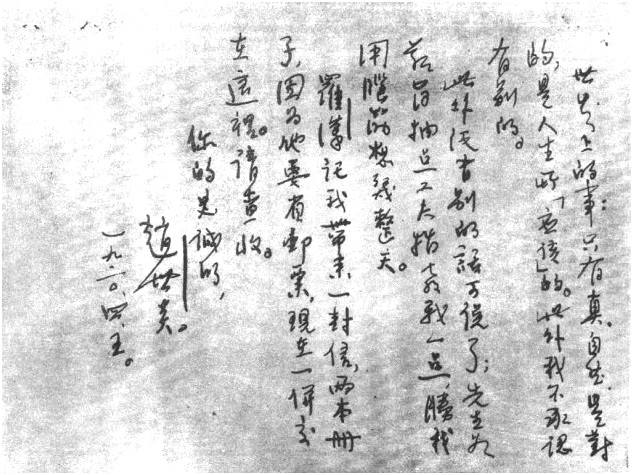 世界上的事:只有真,自然,是對
的,是人生所「應該」的。此外我不承認
有別的。
此外沒有別的話可說了;先生如
若肯抽点工夫指教我一点,勝我
用腦筋想幾整天。
羅漢託我帶來一封信,兩本冊
子,因為他要省郵票,現在一併交
在這裡。請查收。
你的忠誠的,
趙世炎。
一九二〇、四、五。